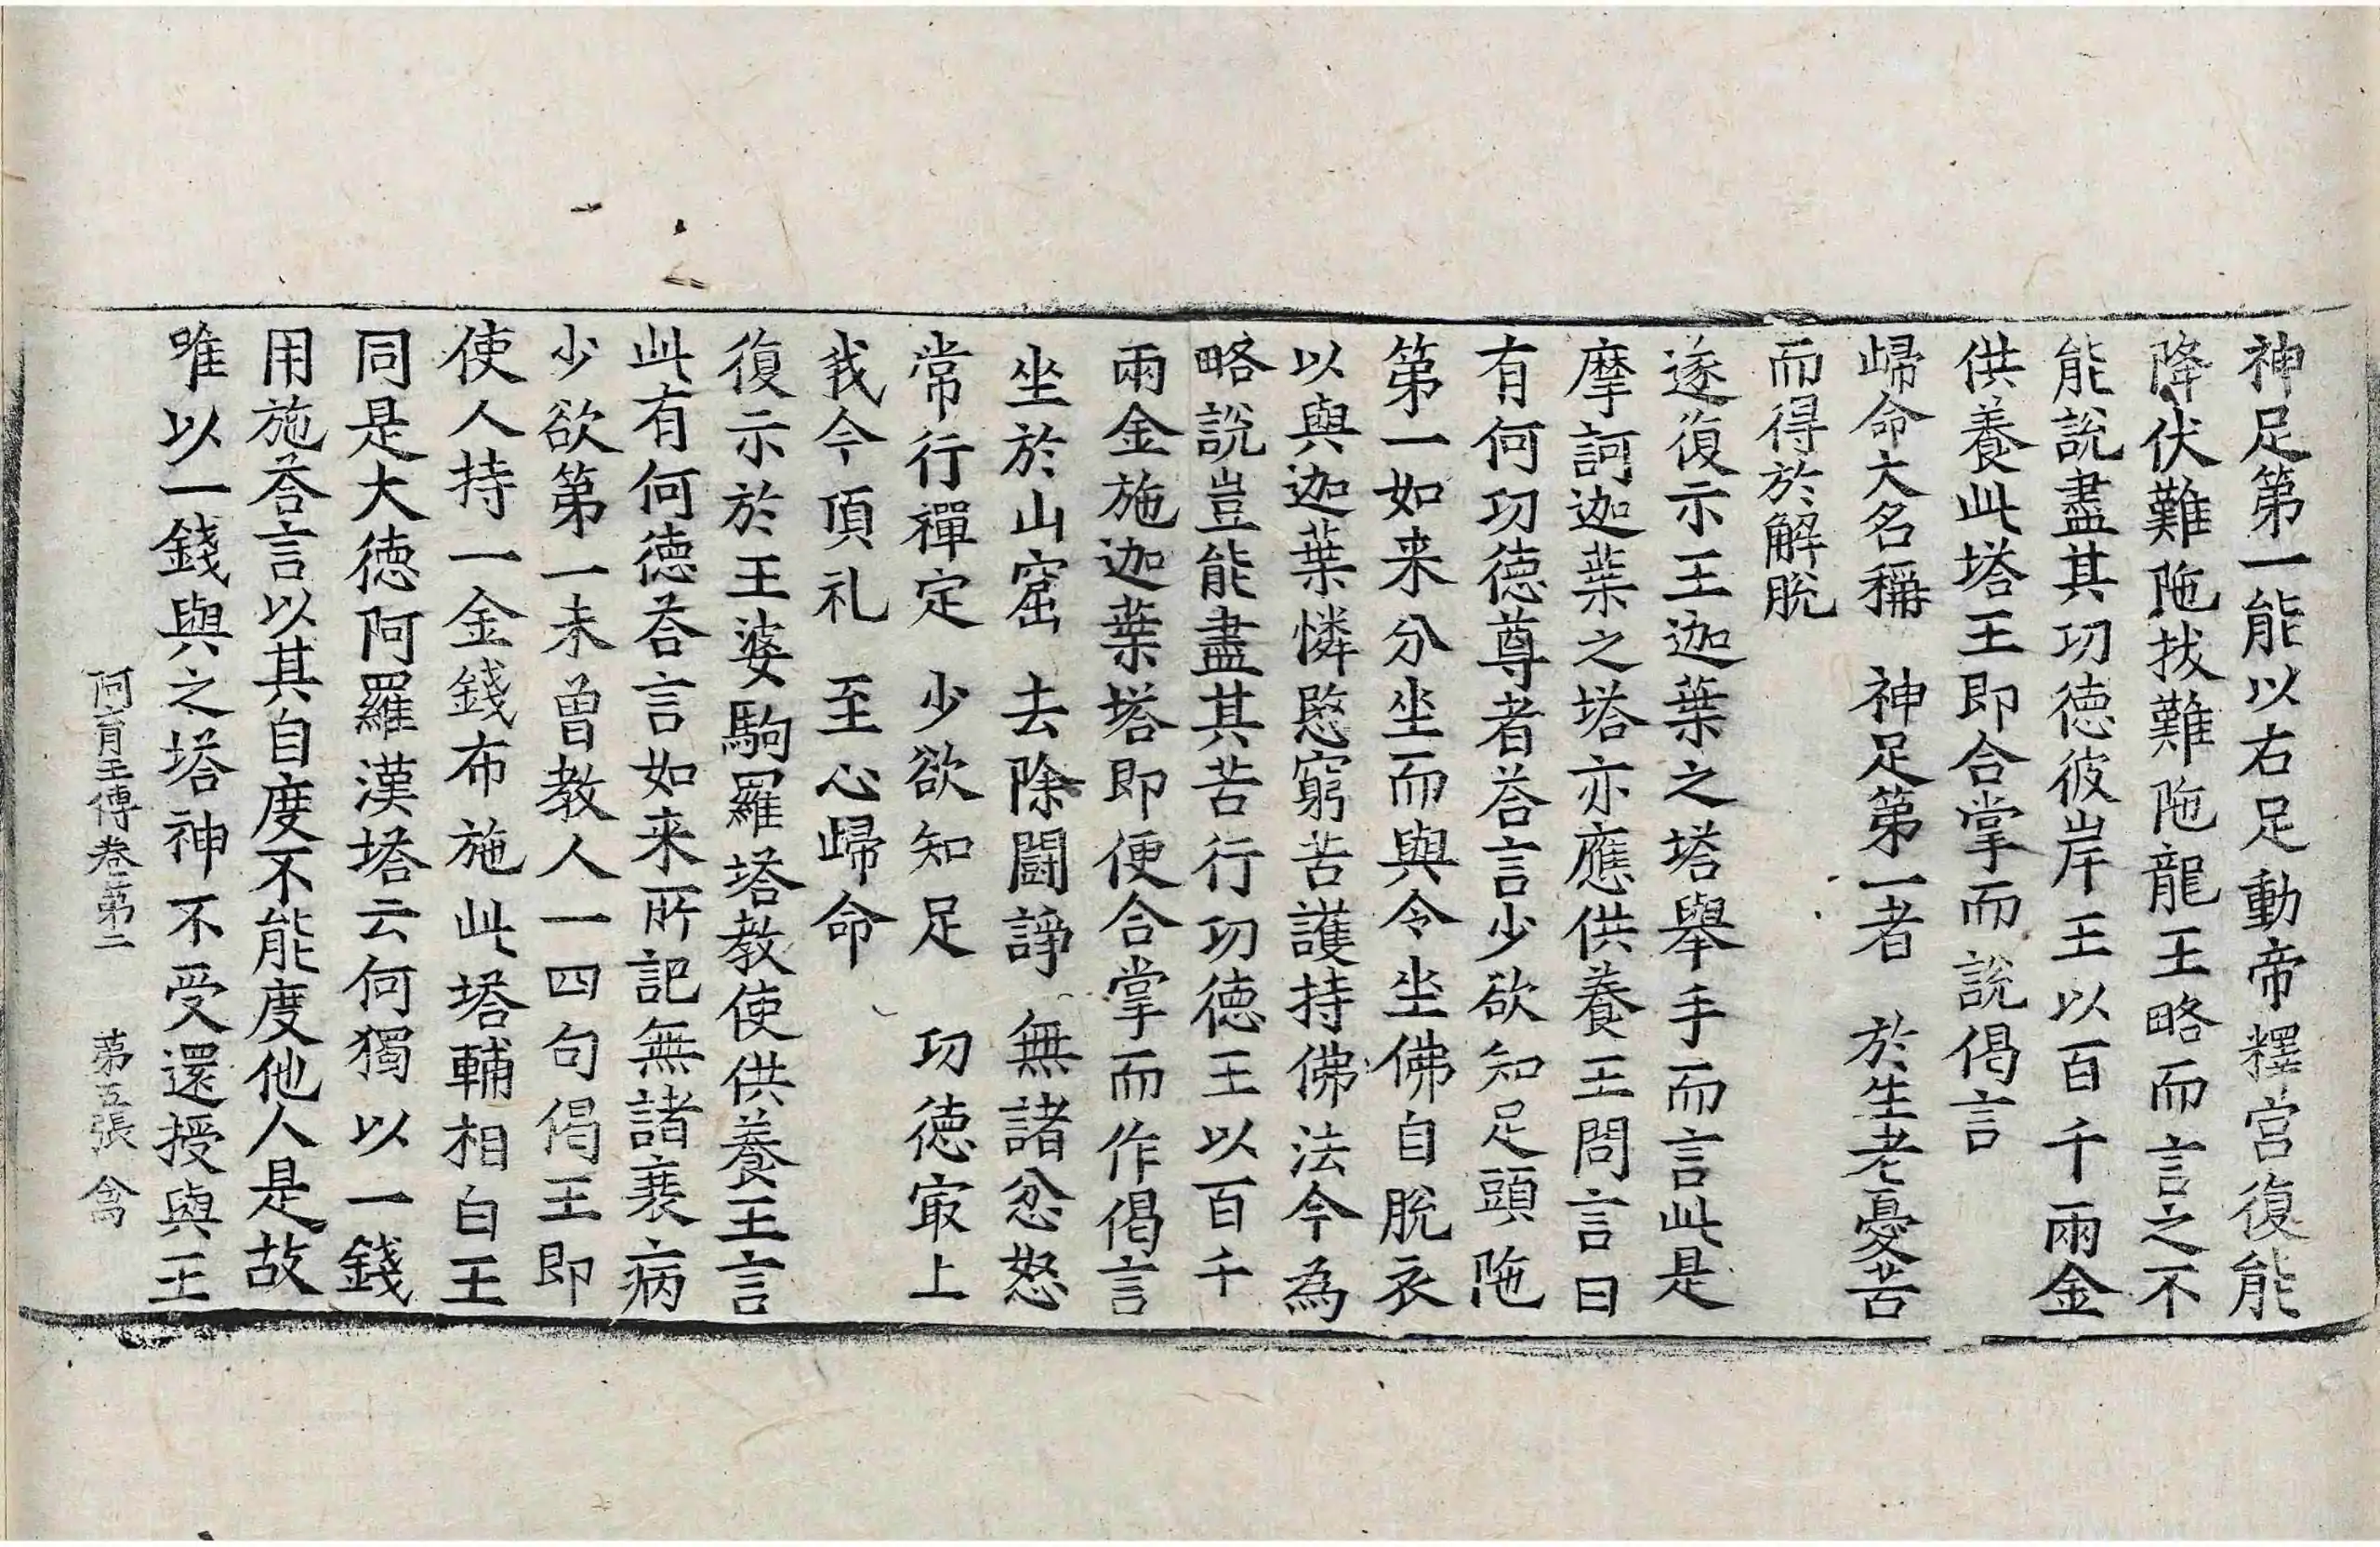 神足第一能以右足動帝釋宮復能
降伏難陁拔難陁龍王略而言之不
能說盡其功德彼岸王以百千兩金
供養此塔王即合掌而說偈言
歸命大名稱　神足第一者　於生老憂苦
而得於解脫
遂復示王迦葉之塔舉手而言此是
摩訶迦葉之塔亦應供養王問言曰
有何功德尊者荅言少欲知足頭陁
第一如来分坐而與令坐佛自脫衣
以與迦葉憐愍窮苦護持佛法今為
略說豈能盡其苦行功德王以百千
兩金施迦葉塔即便合掌而作偈言
坐於山窟　去除鬪諍　無諸忿怒
常行禪定　少欲知足　功德㝡上
我今頂礼　至心歸命
復示於王婆駒羅塔教使供養王言
此有何德荅言如来所記無諸衰病
少欲第一未曾教人一四句偈王即
使人持一金錢布施此塔輔相白王
同是大德阿羅漢塔云何獨以一錢
用施荅言以其自度不能度他人是故
唯以一錢與之塔神不受還授與王
阿育王傳卷第二　第五張　禽